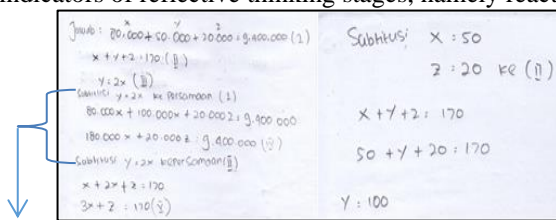 indicators of reflective thinking stages, namely react
x y z
Jawab : 80.000 + 50.000 + 20.000 : 9.400.000 (1)
x + y + z : 170 (II)
y : 2x (III)
Subtitusi y = 2x ke Persamaan (1)
80.000x + 100.000x + 20.000z : 9.400.000
180.000x + 20.000z : 9.400.000 (IV)
Subtitusi y = 2x kepersamaan (II)
x + 2x + z = 170
3x + z : 170 (V)
Subtitusi x : 50
z : 20 ke (II)
x + y + z : 170
50 + y + 20 : 170
y : 100